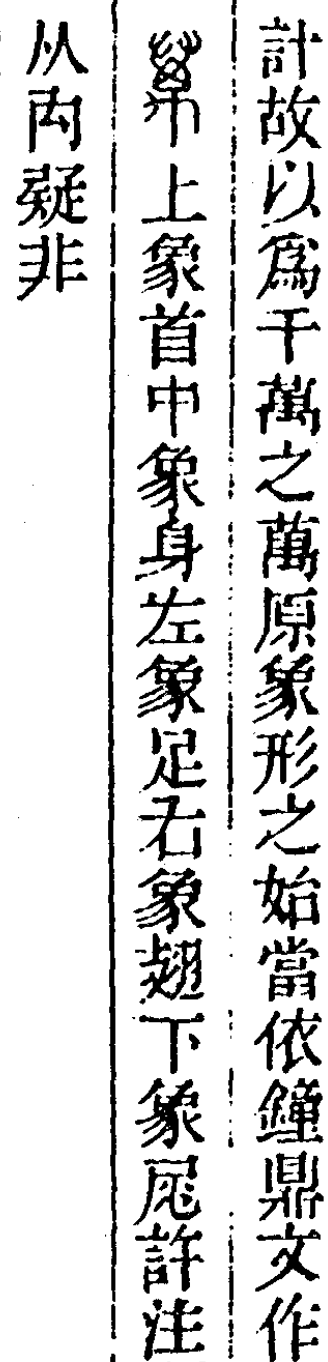 計故以爲千萬之萬原象形之始當依鐘鼎文作
上象首中象身左象足右象翅下象尾許注
从禸疑非